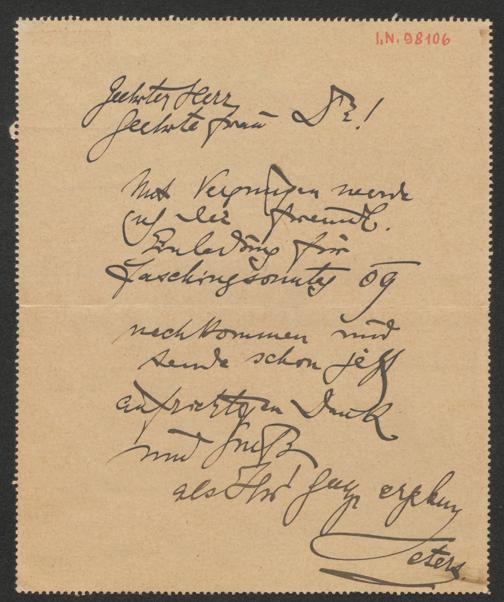 I.N. 98106
Geehrter Herr
Geehrte Frau Dr!
Mit Vergnügen werde
ich der freundl.
Einladung für
Faschingsonntag
nachkommen und
sende schon jetzt
aufrichtigen Dank
und Gruß
als Ihr ganz ergebener